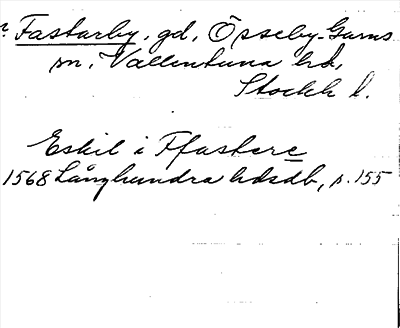 Fastarby, gd, Össeby-Garns
sn, Vallentuna hd,
Stockh l.
Eskil i Ffastere
1568 Långhundra hdsdb, p. 155